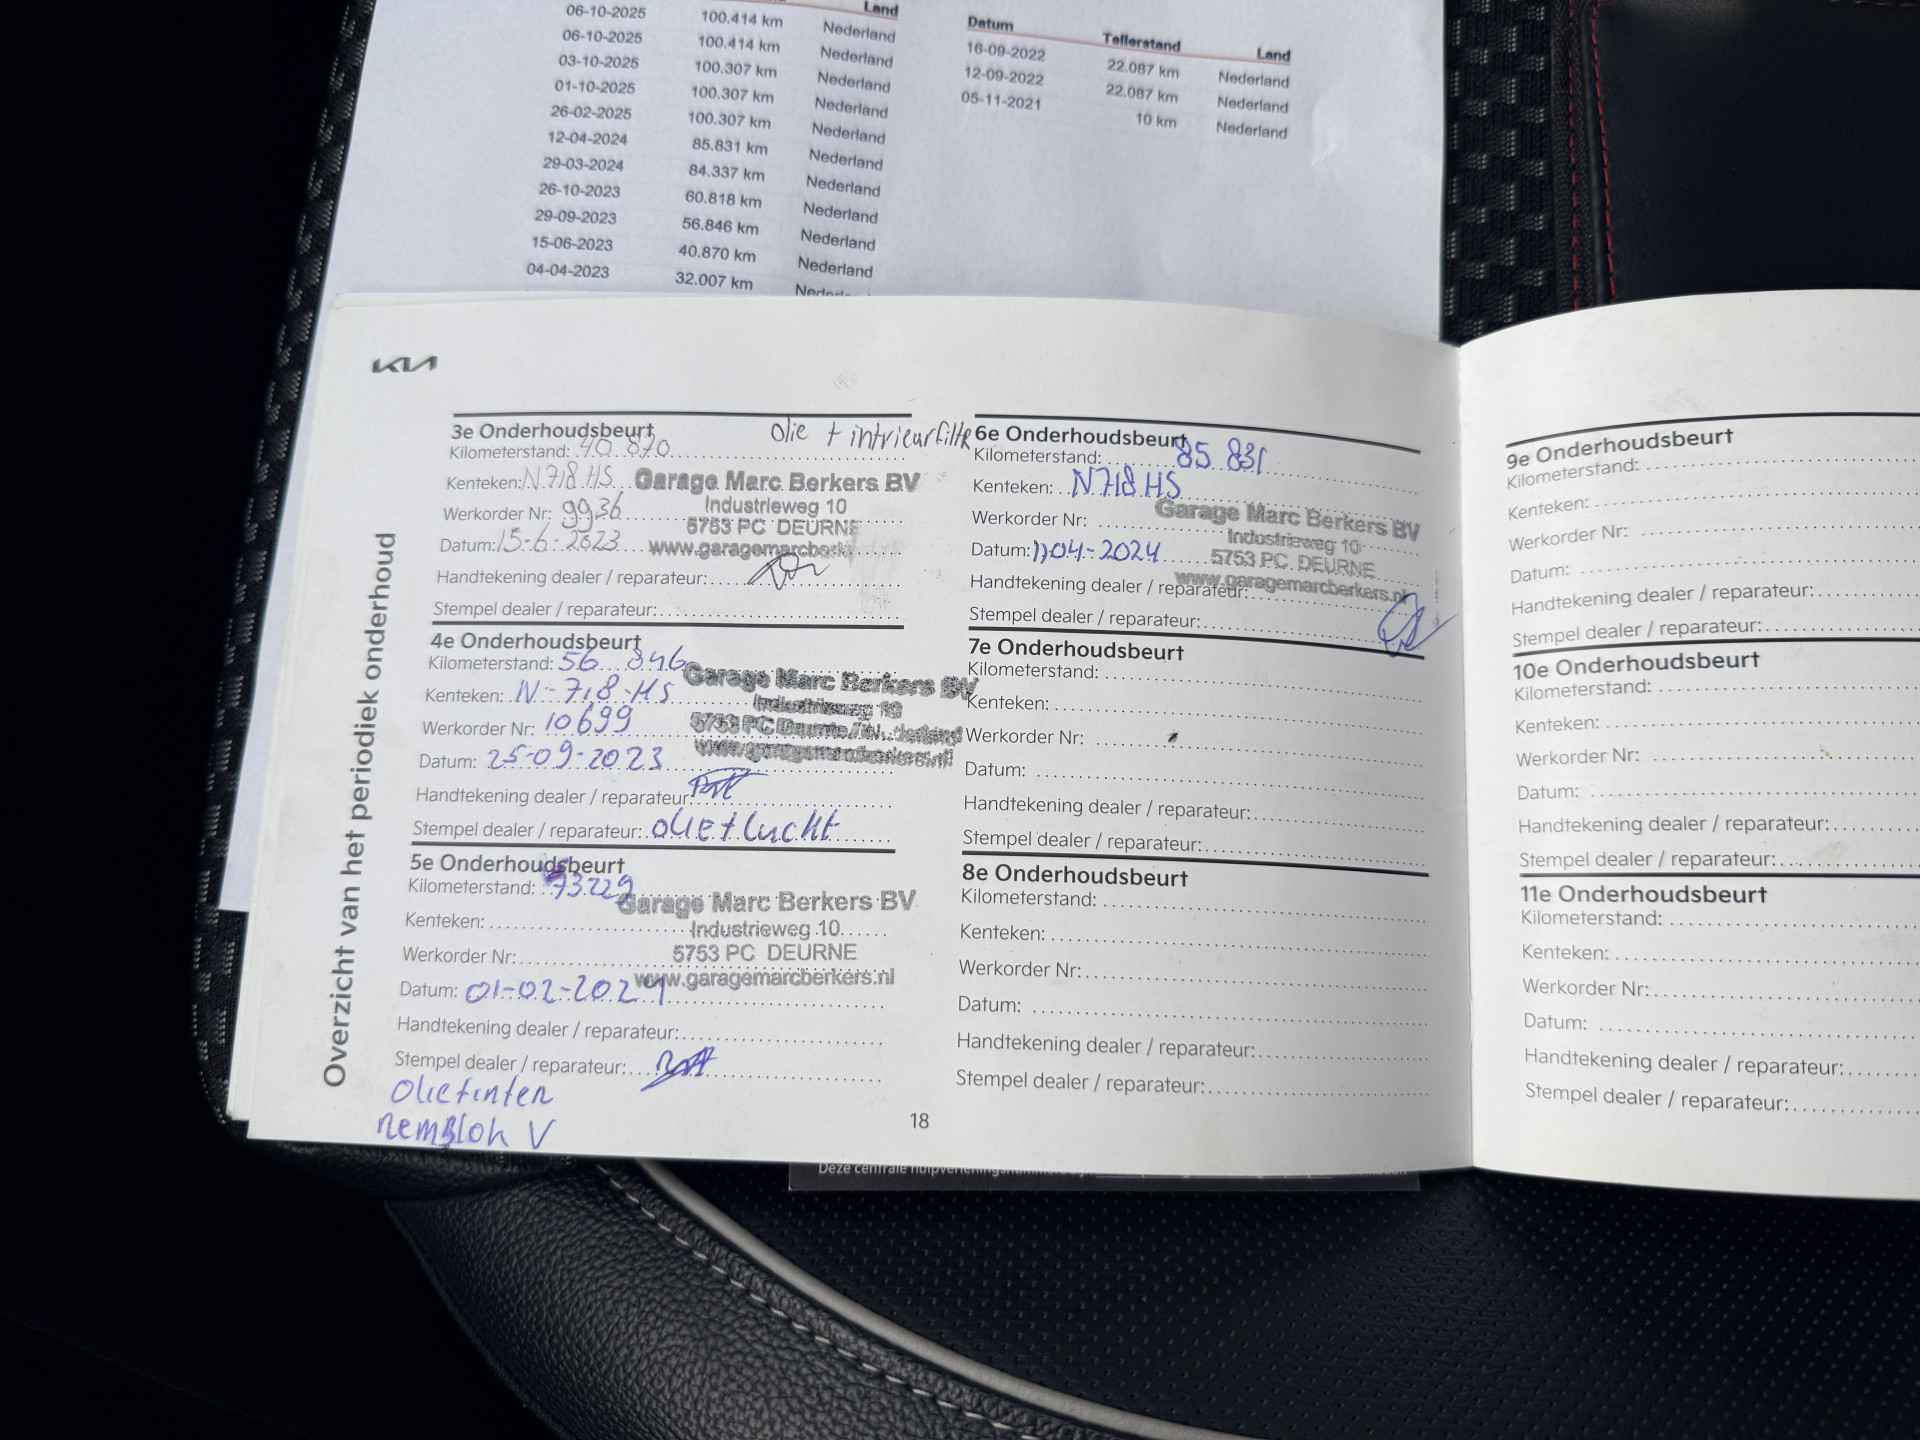 Land
06-10-2025 100.414 km Nederland
06-10-2025 100.414 km Nederland
03-10-2025 100.307 km Nederland
01-10-2025 100.307 km Nederland
26-02-2025 100.307 km Nederland
12-04-2024 85.831 km Nederland
29-03-2024 84.337 km Nederland
26-10-2023 60.818 km Nederland
29-09-2023 56.846 km Nederland
15-06-2023 40.870 km Nederland
04-04-2023 32.007 km
Datum Tellerstand Land
16-09-2022 22.087 km Nederland
12-09-2022 22.087 km Nederland
05-11-2021 10 km Nederland
KIA
Overzicht van het periodiek onderhoud
3e Onderhoudsbeurt olie + intrieurfiltr
Kilometerstand: 40 870
Kenteken: N718HS
Werkorder Nr: 9936
Datum: 15-6-2023
Handtekening dealer / reparateur:
Stempel dealer / reparateur:
Garage Marc Berkers BV
Industrieweg 10
5753 PC DEURNE
4e Onderhoudsbeurt
Kilometerstand: 56 846
Kenteken: N-718-HS
Werkorder Nr: 10699
Datum: 25-09-2023
Handtekening dealer / reparateur:
Stempel dealer / reparateur: olie + lucht
Garage Marc Berkers BV
Industrieweg 10
5e Onderhoudsbeurt
Kilometerstand: 73.229
Kenteken:
Werkorder Nr:
Datum: 01-02-2024
Handtekening dealer / reparateur:
Stempel dealer / reparateur:
Garage Marc Berkers BV
Industrieweg 10
5753 PC DEURNE
www.garagemarcberkers.nl
Remblok V
6e Onderhoudsbeurt
Kilometerstand: 85 831
Kenteken: N718HS
Werkorder Nr:
Datum: 11-04-2024
Handtekening dealer / reparateur:
Stempel dealer / reparateur:
Garage Marc Berkers BV
Industrieweg 10
5753 PC DEURNE
www.garagemarcberkers.nl
7e Onderhoudsbeurt
Kilometerstand:
Kenteken:
Werkorder Nr:
Datum:
Handtekening dealer / reparateur:
Stempel dealer / reparateur:
8e Onderhoudsbeurt
Kilometerstand:
Kenteken:
Werkorder Nr:
Datum:
Handtekening dealer / reparateur:
Stempel dealer / reparateur:
18
9e Onderhoudsbeurt
Kilometerstand:
Kenteken:
Werkorder Nr:
Datum:
Handtekening dealer / reparateur:
Stempel dealer / reparateur:
10e Onderhoudsbeurt
Kilometerstand:
Kenteken:
Werkorder Nr:
Datum:
Handtekening dealer / reparateur:
Stempel dealer / reparateur:
11e Onderhoudsbeurt
Kilometerstand:
Kenteken:
Werkorder Nr:
Datum:
Handtekening dealer / reparateur:
Stempel dealer / reparateur:
Deze centrale